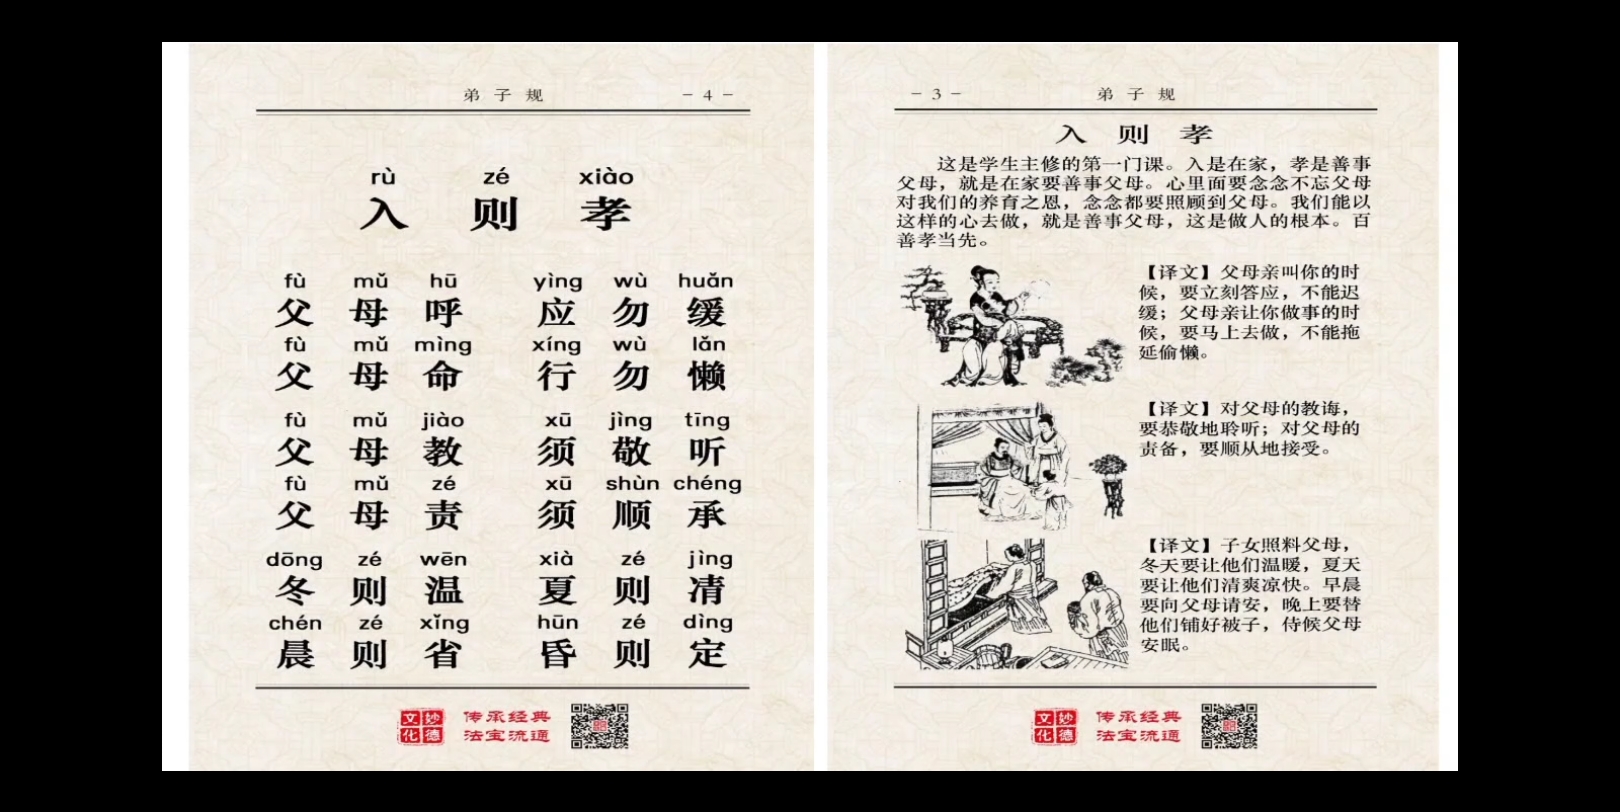 弟子规 －4－
rù zé xiào
入则孝
fù mǔ hū yìng wù huǎn
父母呼 应勿缓
fù mǔ mìng xíng wù lǎn
父母命 行勿懒
fù mǔ jiào xū jìng tīng
父母教 须敬听
fù mǔ zé xū shùn chéng
父母责 须顺承
dōng zé wēn xià zé jìng
冬则温 夏则清
chén zé xǐng hūn zé dìng
晨则省 昏则定
妙德文化
传承经典
法宝流通
－3－ 弟子规
入则孝
这是学生主修的第一门课。入是在家，孝是善事
父母，就是在家要善事父母。心里面要念念不忘父母
对我们的养育之恩，念念都要照顾到父母。我们能以
这样的心去做，就是善事父母，这是做人的根本。百
善孝当先。
【译文】父母亲叫你的时
候，要立刻答应，不能迟
缓；父母亲让你做事的时
候，要马上去做，不能拖
延偷懒。
【译文】对父母的教诲，
要恭敬地聆听；对父母的
责备，要顺从地接受。
【译文】子女照料父母，
冬天要让他们温暖，夏天
要让他们清爽凉快。早晨
要向父母请安，晚上要替
他们铺好被子，侍候父母
安眠。
妙德文化
传承经典
法宝流通